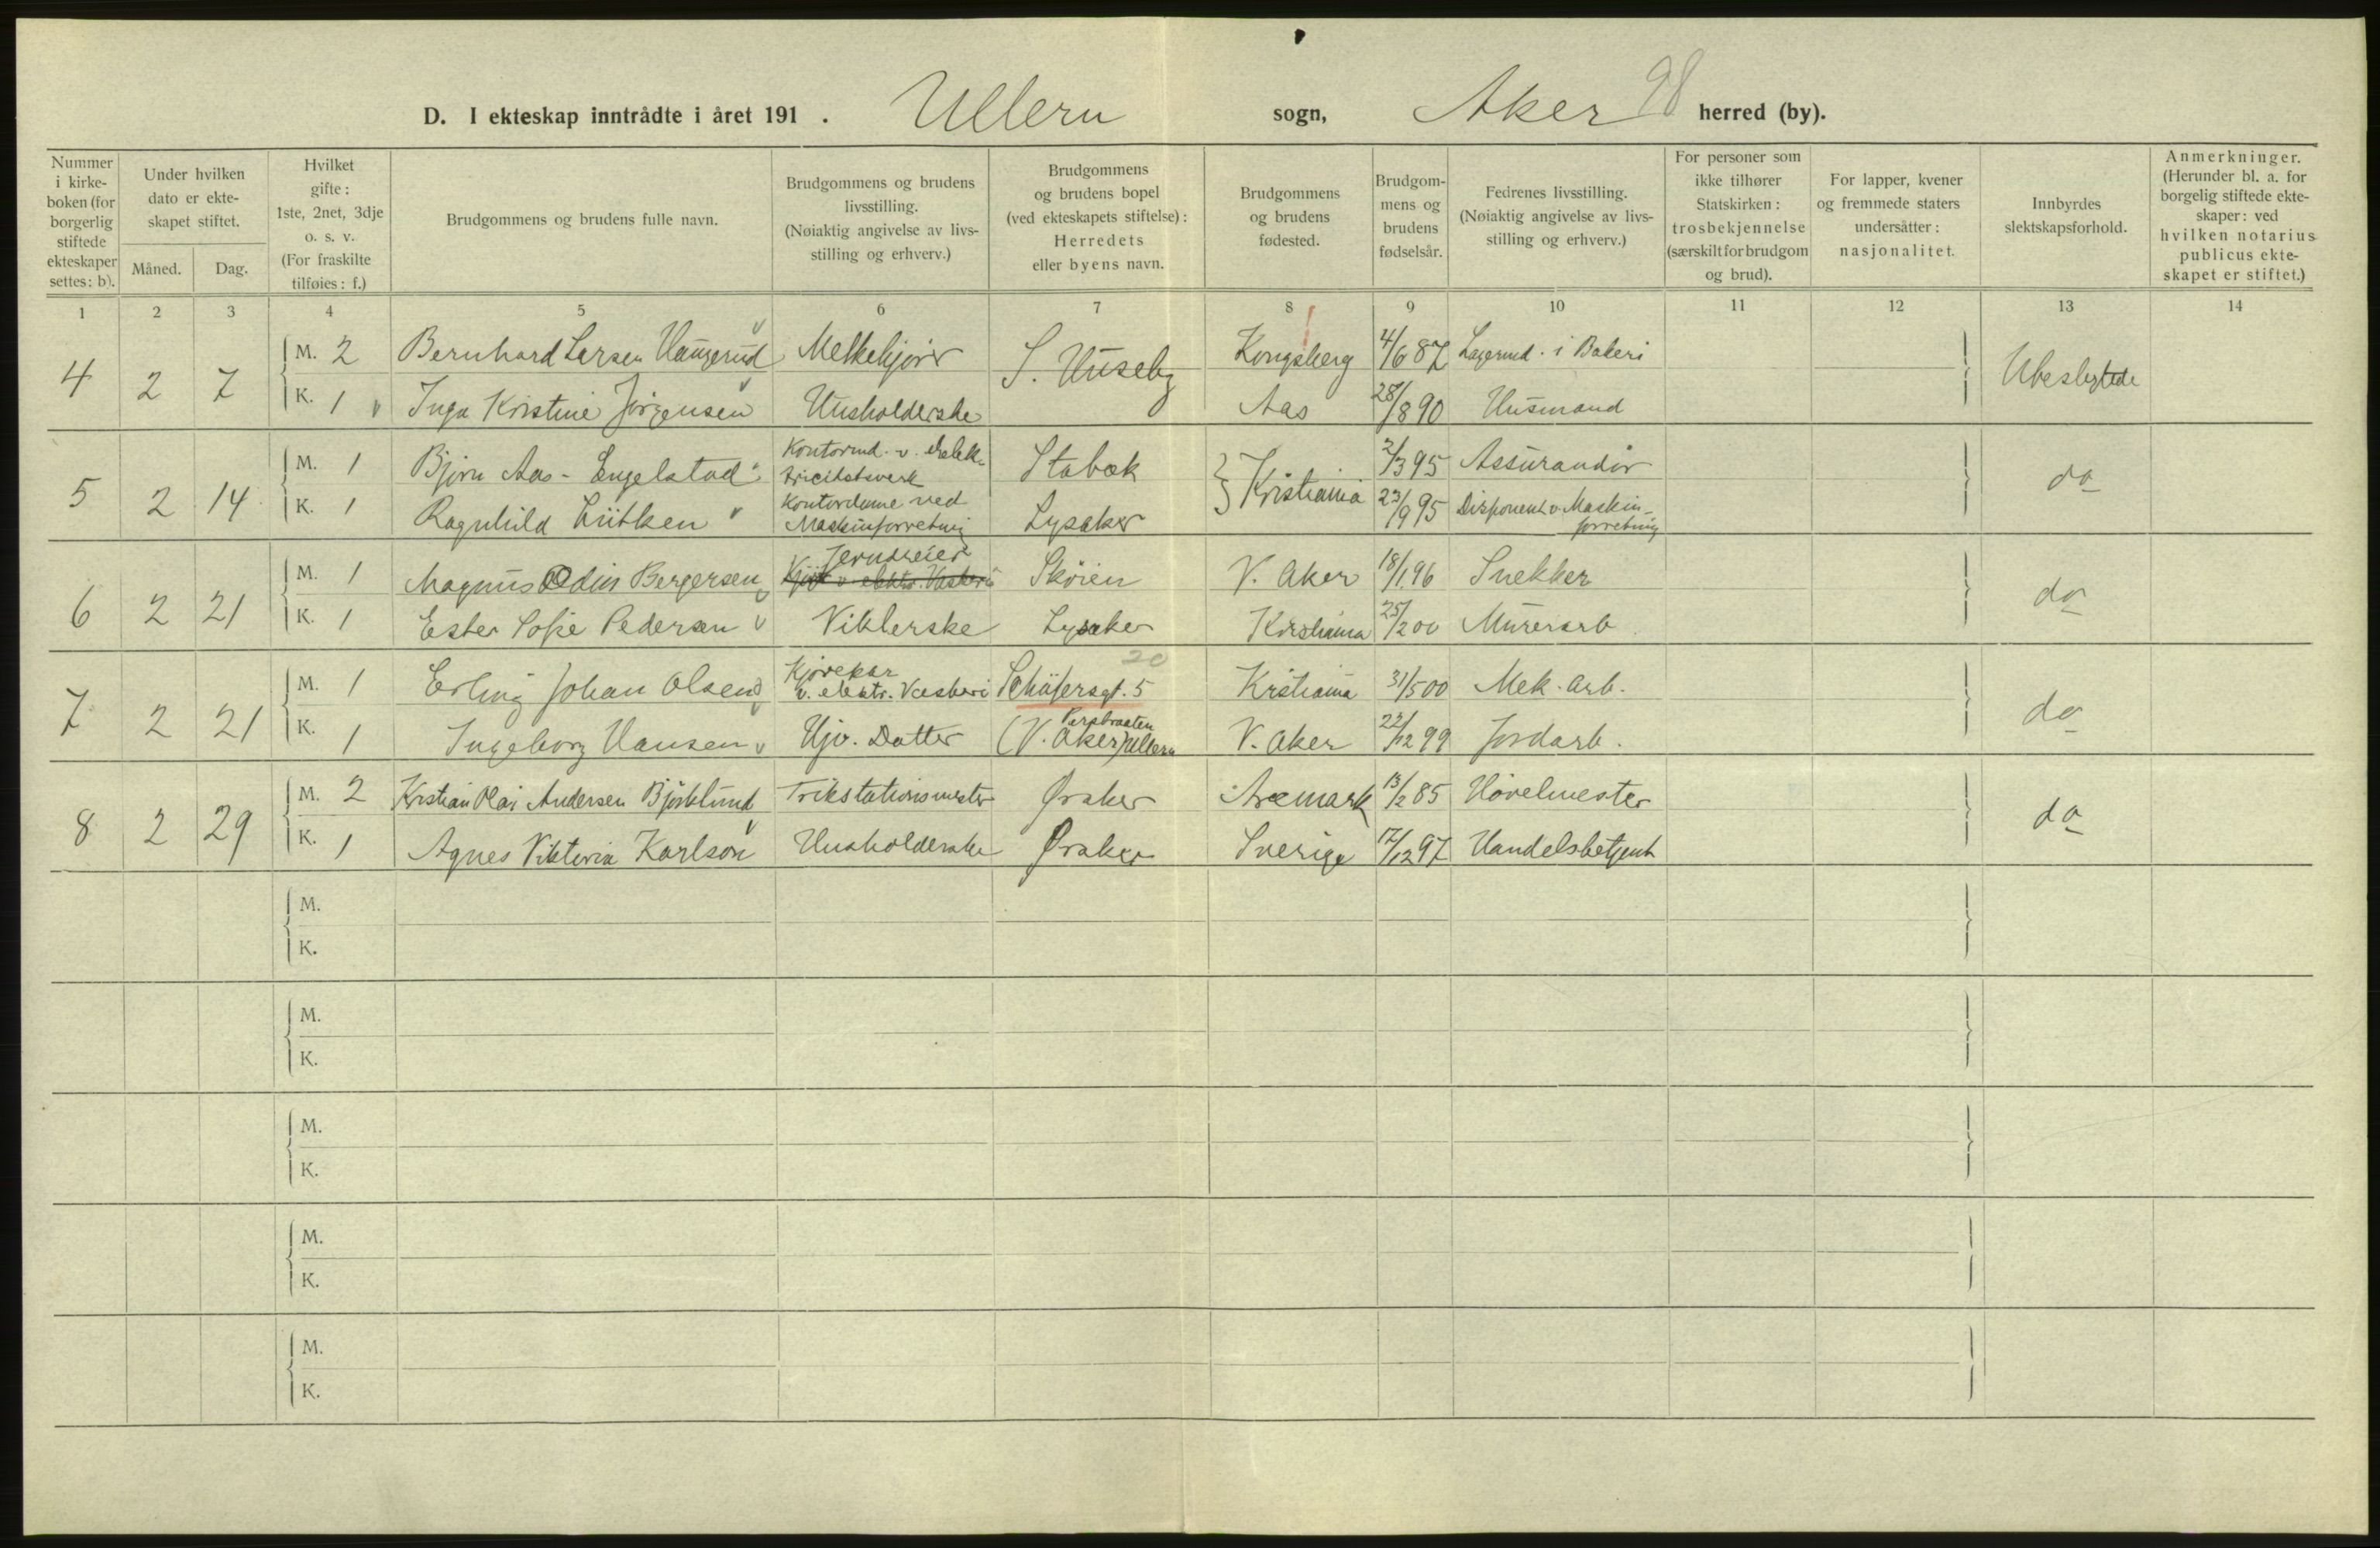 98
D. I ekteskap inntrådte i året 191 . Ullern sogn, Aker herred (by).
Nummer i kirkeboken (for borgerlig stiftede ekteskaper settes: b).
Under hvilken dato er ekteskapet stiftet.
Måned. Dag.
Hvilket gifte: 1ste, 2net, 3dje o. s. v. (For fraskilte tilføies: f.)
Brudgommens og brudens fulle navn.
Brudgommens og brudens livsstilling. (Nøiaktig angivelse av livsstilling og erhverv.)
Brudgommens og brudens bopel (ved ekteskapets stiftelse): Herredets eller byens navn.
Brudgommens og brudens fødested.
Brudgommens og brudens fødselsår.
Fedrenes livsstilling. (Nøiaktig angivelse av livsstilling og erhverv.)
For personer som ikke tilhører Statskirken: trosbekjennelse (særskilt for brudgom og brud).
For lapper, kvener og fremmede staters undersåtter: nasjonalitet.
Innbyrdes slektskapsforhold.
Anmerkninger. (Herunder bl. a. for borgelig stiftede ekteskaper: ved hvilken notarius publicus ekteskapet er stiftet.)
1 2 3 4 5 6 7 8 9 10 11 12 13 14
4 2 7 M. 2 Bernhard Larsen Haugerud Melkekjører S. Huseby Kongsberg 4/6 87 Lagermd. i Bakeri Ubeslegtede
K. 1 Inga Kristine Jørgensen Husholderske Aas 28/8 90 Husmand
5 2 14 M. 1 Bjørn Aas-Engelstad Kontormd. v. Elektricitetsverk Stabæk Kristiania 2/3 95 Assurandør do
K. 1 Ragnhild Lütken Kontordame ved Maskinforretning Lysaker 23/9 95 Disponent v. Maskinforretning
6 2 21 M. 1 Magnus Odin Bergersen Skøien V. Aker 18/1 96 Snekker do
K. 1 Ester Sofie Pedersen Viklerske Lysaker Kristiania 25/2 00 Murerarb
7 2 21 M. 1 Erling Johan Olsen Kjørekar v. elektr. Vaskeri Schäfersgt. 5 20 Kristiania 31/5 00 Mek. arb. do
K. 1 Ingeborg Hansen Hjv. Datter (V. Aker) Ullern V. Aker 22/12 99 Jordarb.
8 2 29 M. 2 Kristian Olai Andersen Bjørklund Trikstationsmester Øraker Aremark 13/2 85 Høvelmester do
K. 1 Agnes Viktoria Karlson Husholderske Øraker Sverige 17/12 97 Handelsbetjent
M.
K.
M.
K.
M.
K.
M.
K.
M.
K.